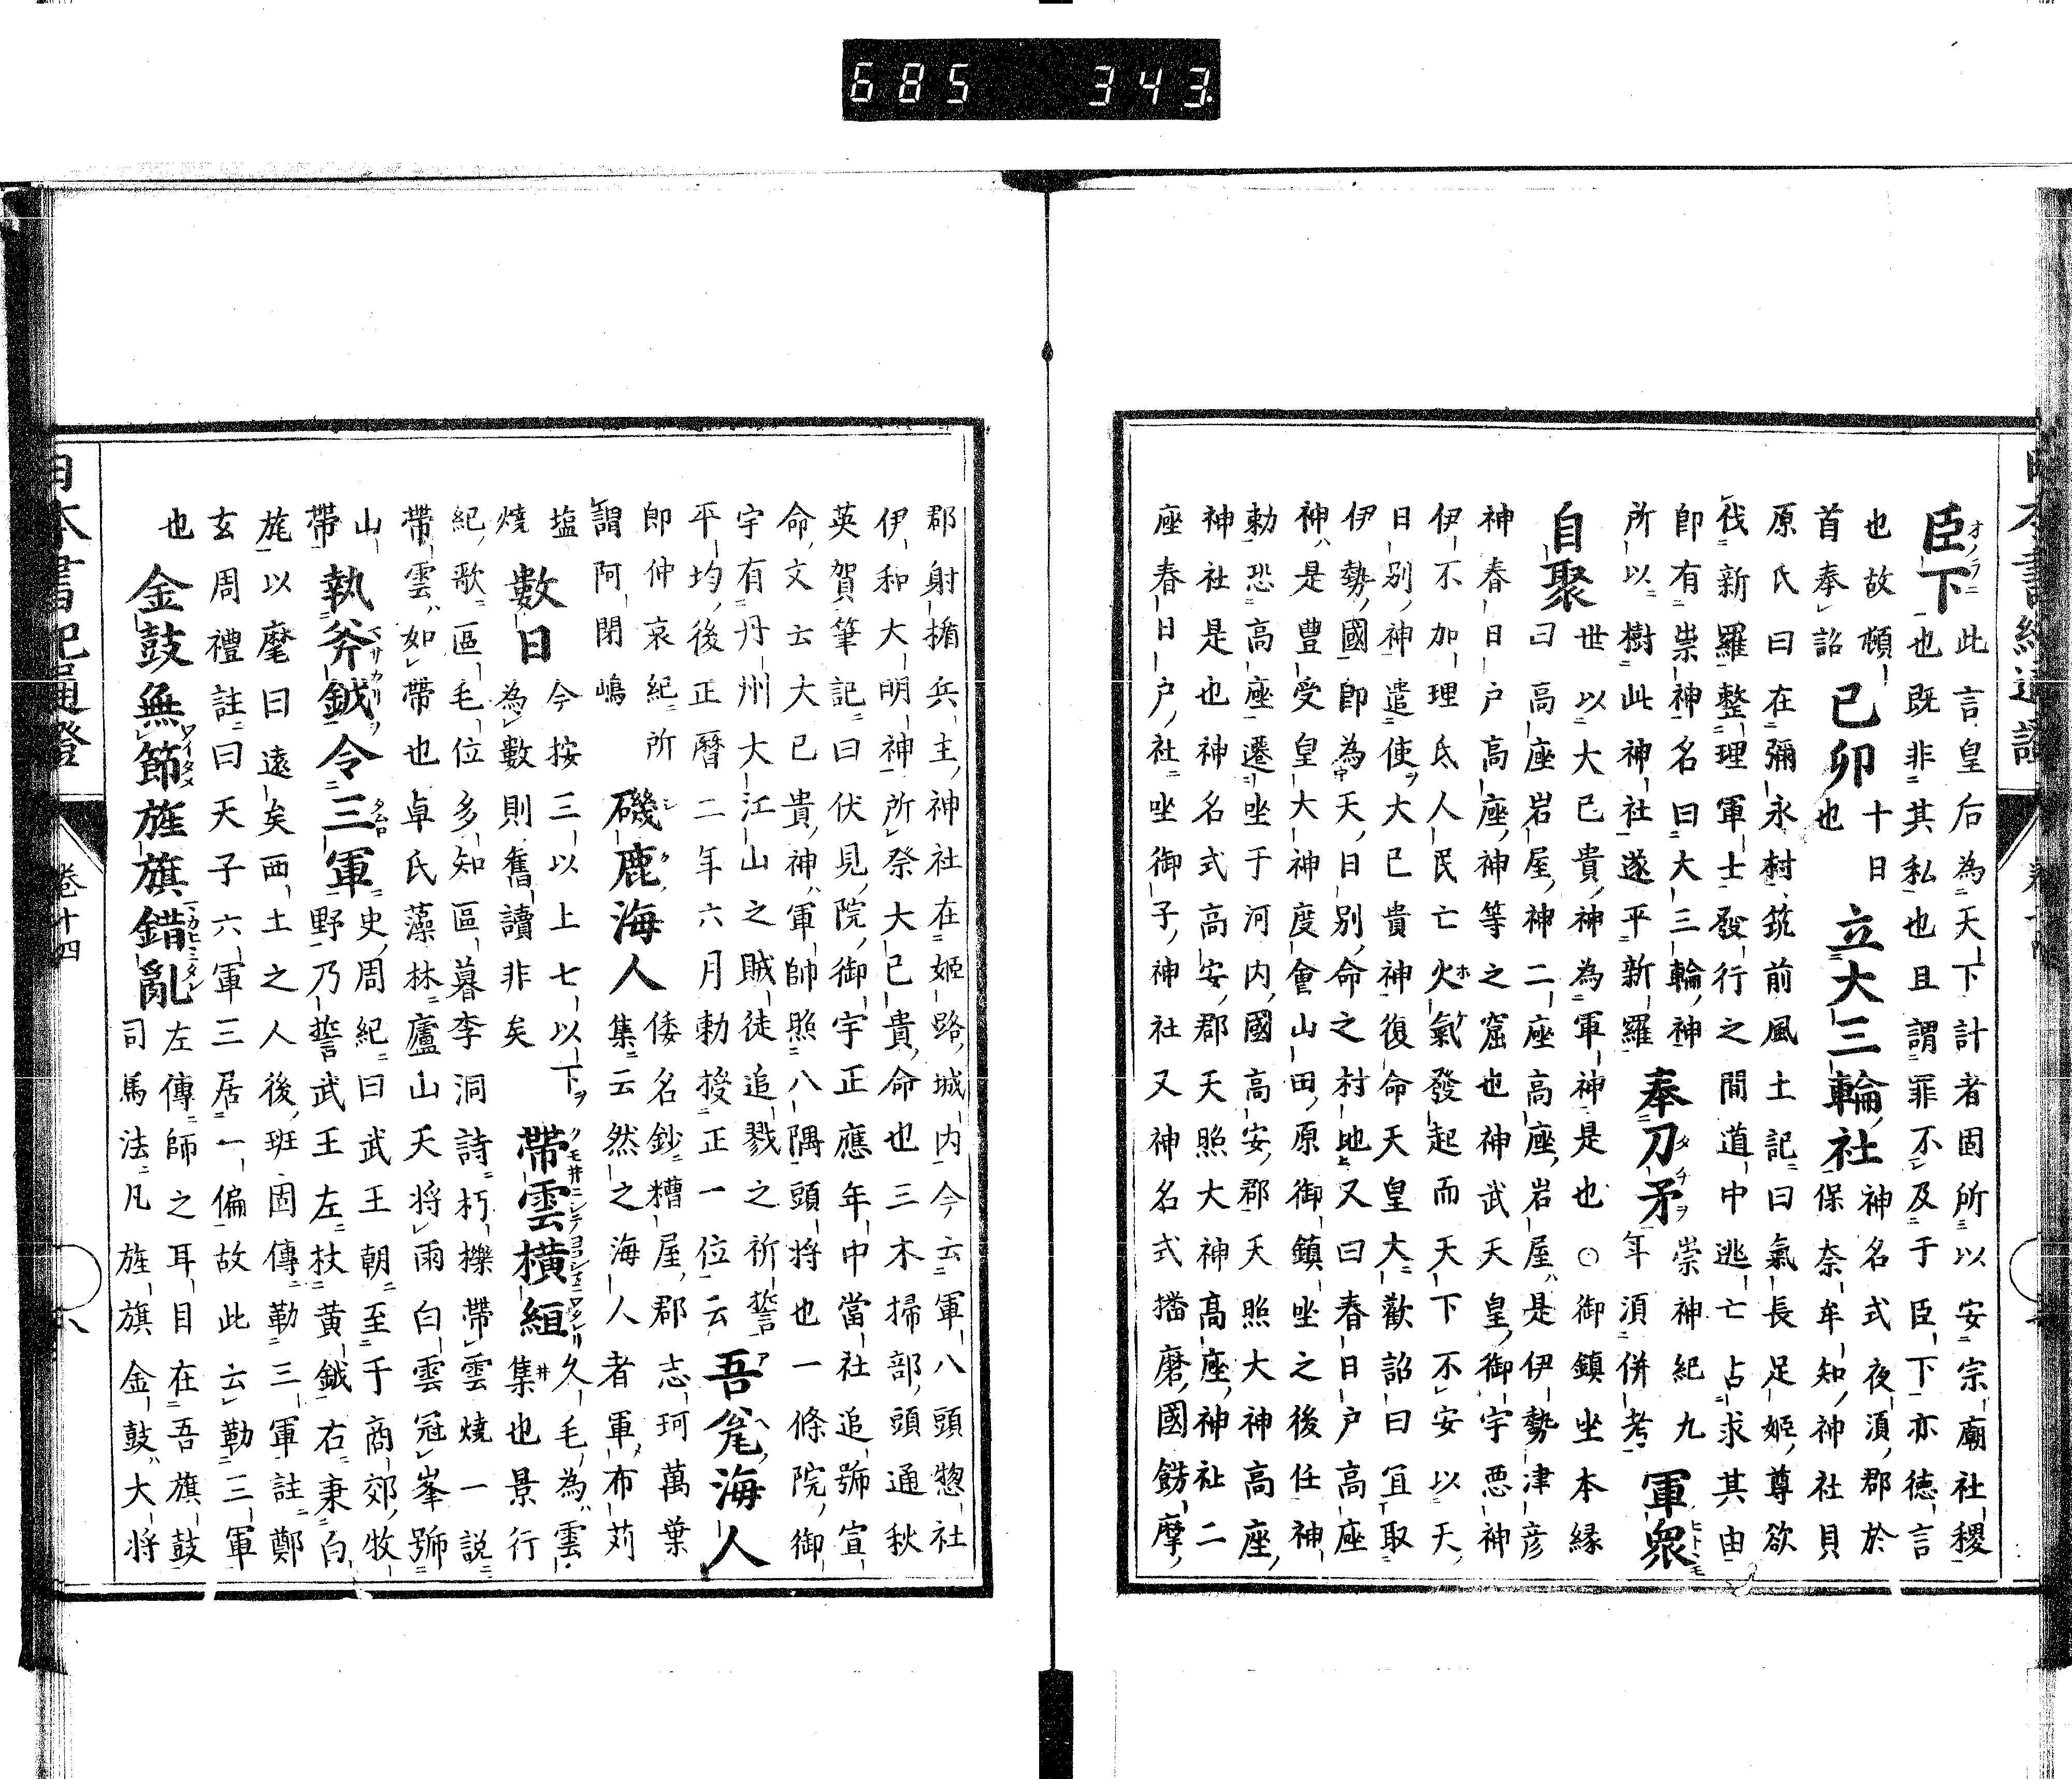 臣下
此言皇后為天下計者固所以安宗廟社稷
也既非其私也且謂罪不及于臣下亦德言
也故
首奉詔
已卯
十日
也
立大三輪社
神名式夜須郡於
保奈牟知神社貝
原氏曰在彌永村筑前風土記曰氣長足姫尊欲
伐新羅整理軍士發行之間道中逃亡占求其由
即有祟神名曰大三輪神
所以樹此神社遂平新羅
奉刀矛
崇神紀九
年須併考
軍衆
自聚
世以大已貴神為軍神是也○御鎮坐本縁
曰高座岩屋神二座高座岩屋ハ是伊勢津彦
神春日戸高座神等之窟也神武天皇御宇悪神
伊不加理氐人民亡火氣發起而天下不安以天
日別神遣使大已貴神復命天皇大歡詔曰宜取
伊勢國即為天日別命之村地又曰春日戸高座
神ハ是豊受皇大神度會山田原御鎮坐之後任神
勅恐高座遷坐于河内國高安郡天照大神高座
神社是也神名式高安郡天照大神高座神社二
座春日戸社坐御子神社又神名式播磨國餝摩
郡射楯兵主神社在姫路城内今云軍八頭惣社
伊和大明神所祭大已貴命也三木掃部頭通秋
英賀筆記曰伏見院御宇正應年中當社追號宣
命文云大已貴神ハ軍帥照八隅頭將也一條院御
宇有丹州大江山之賊徒追戮之祈誓
平均後正暦二年六月勅授正一位云
吾瓮海人
即仲哀紀所
謂阿閉嶋
磯鹿海人
倭名鈔糟屋郡志珂萬葉
集云然之海人者軍布苅
塩
焼
數日
今按三以上七以下ヲ
為數則舊讀非矣
帶雲横絚
久毛為ハ雲
集也景行
紀歌區毛位多知區暮李洞詩朽櫟帶雲燒一説
帶雲ハ如帶也卓氏藻林廬山天將雨白雲冠峯號
山
帶
執斧鉞令三軍
史周紀曰武王朝至于商郊牧
野乃誓武王左杖黄鉞右秉白
旄以麾曰遠矣西土之人後班固傳勒三軍註鄭
玄周禮註曰天子六軍三居一偏故此云勒三軍
也
金鼓無節旌旗錯亂
左傳師之耳目在吾旗鼓
司馬法凡旌旗金鼓大將
日本書紀通證
卷十四
685 343